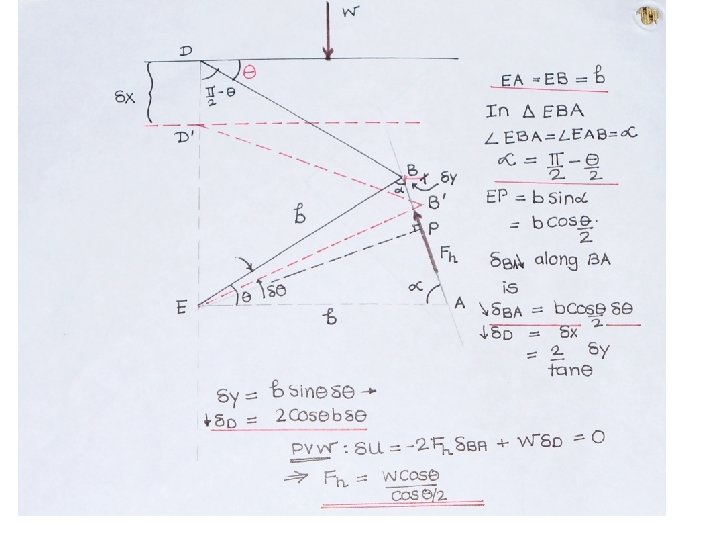 W
D
θ
π/2 - θ
δx
D'
B
α
δy
B'
b
P
Fh
E
θ
δθ
α
A
b
EA = EB = b
In Δ EBA
∠EBA=∠EAB=α
α = π/2 - θ/2
EP = b sinα
= b cos θ/2.
δBA along BA
is
↓δBA = b cos θ/2 δθ
↓δD = δx
= 2/tanθ δy
δy = b sinθ δθ →
↓δD = 2 cosθ b δθ
PVW : δU = -2 Fh δBA + W δD = 0
⇒ Fh = W cosθ / cos θ/2